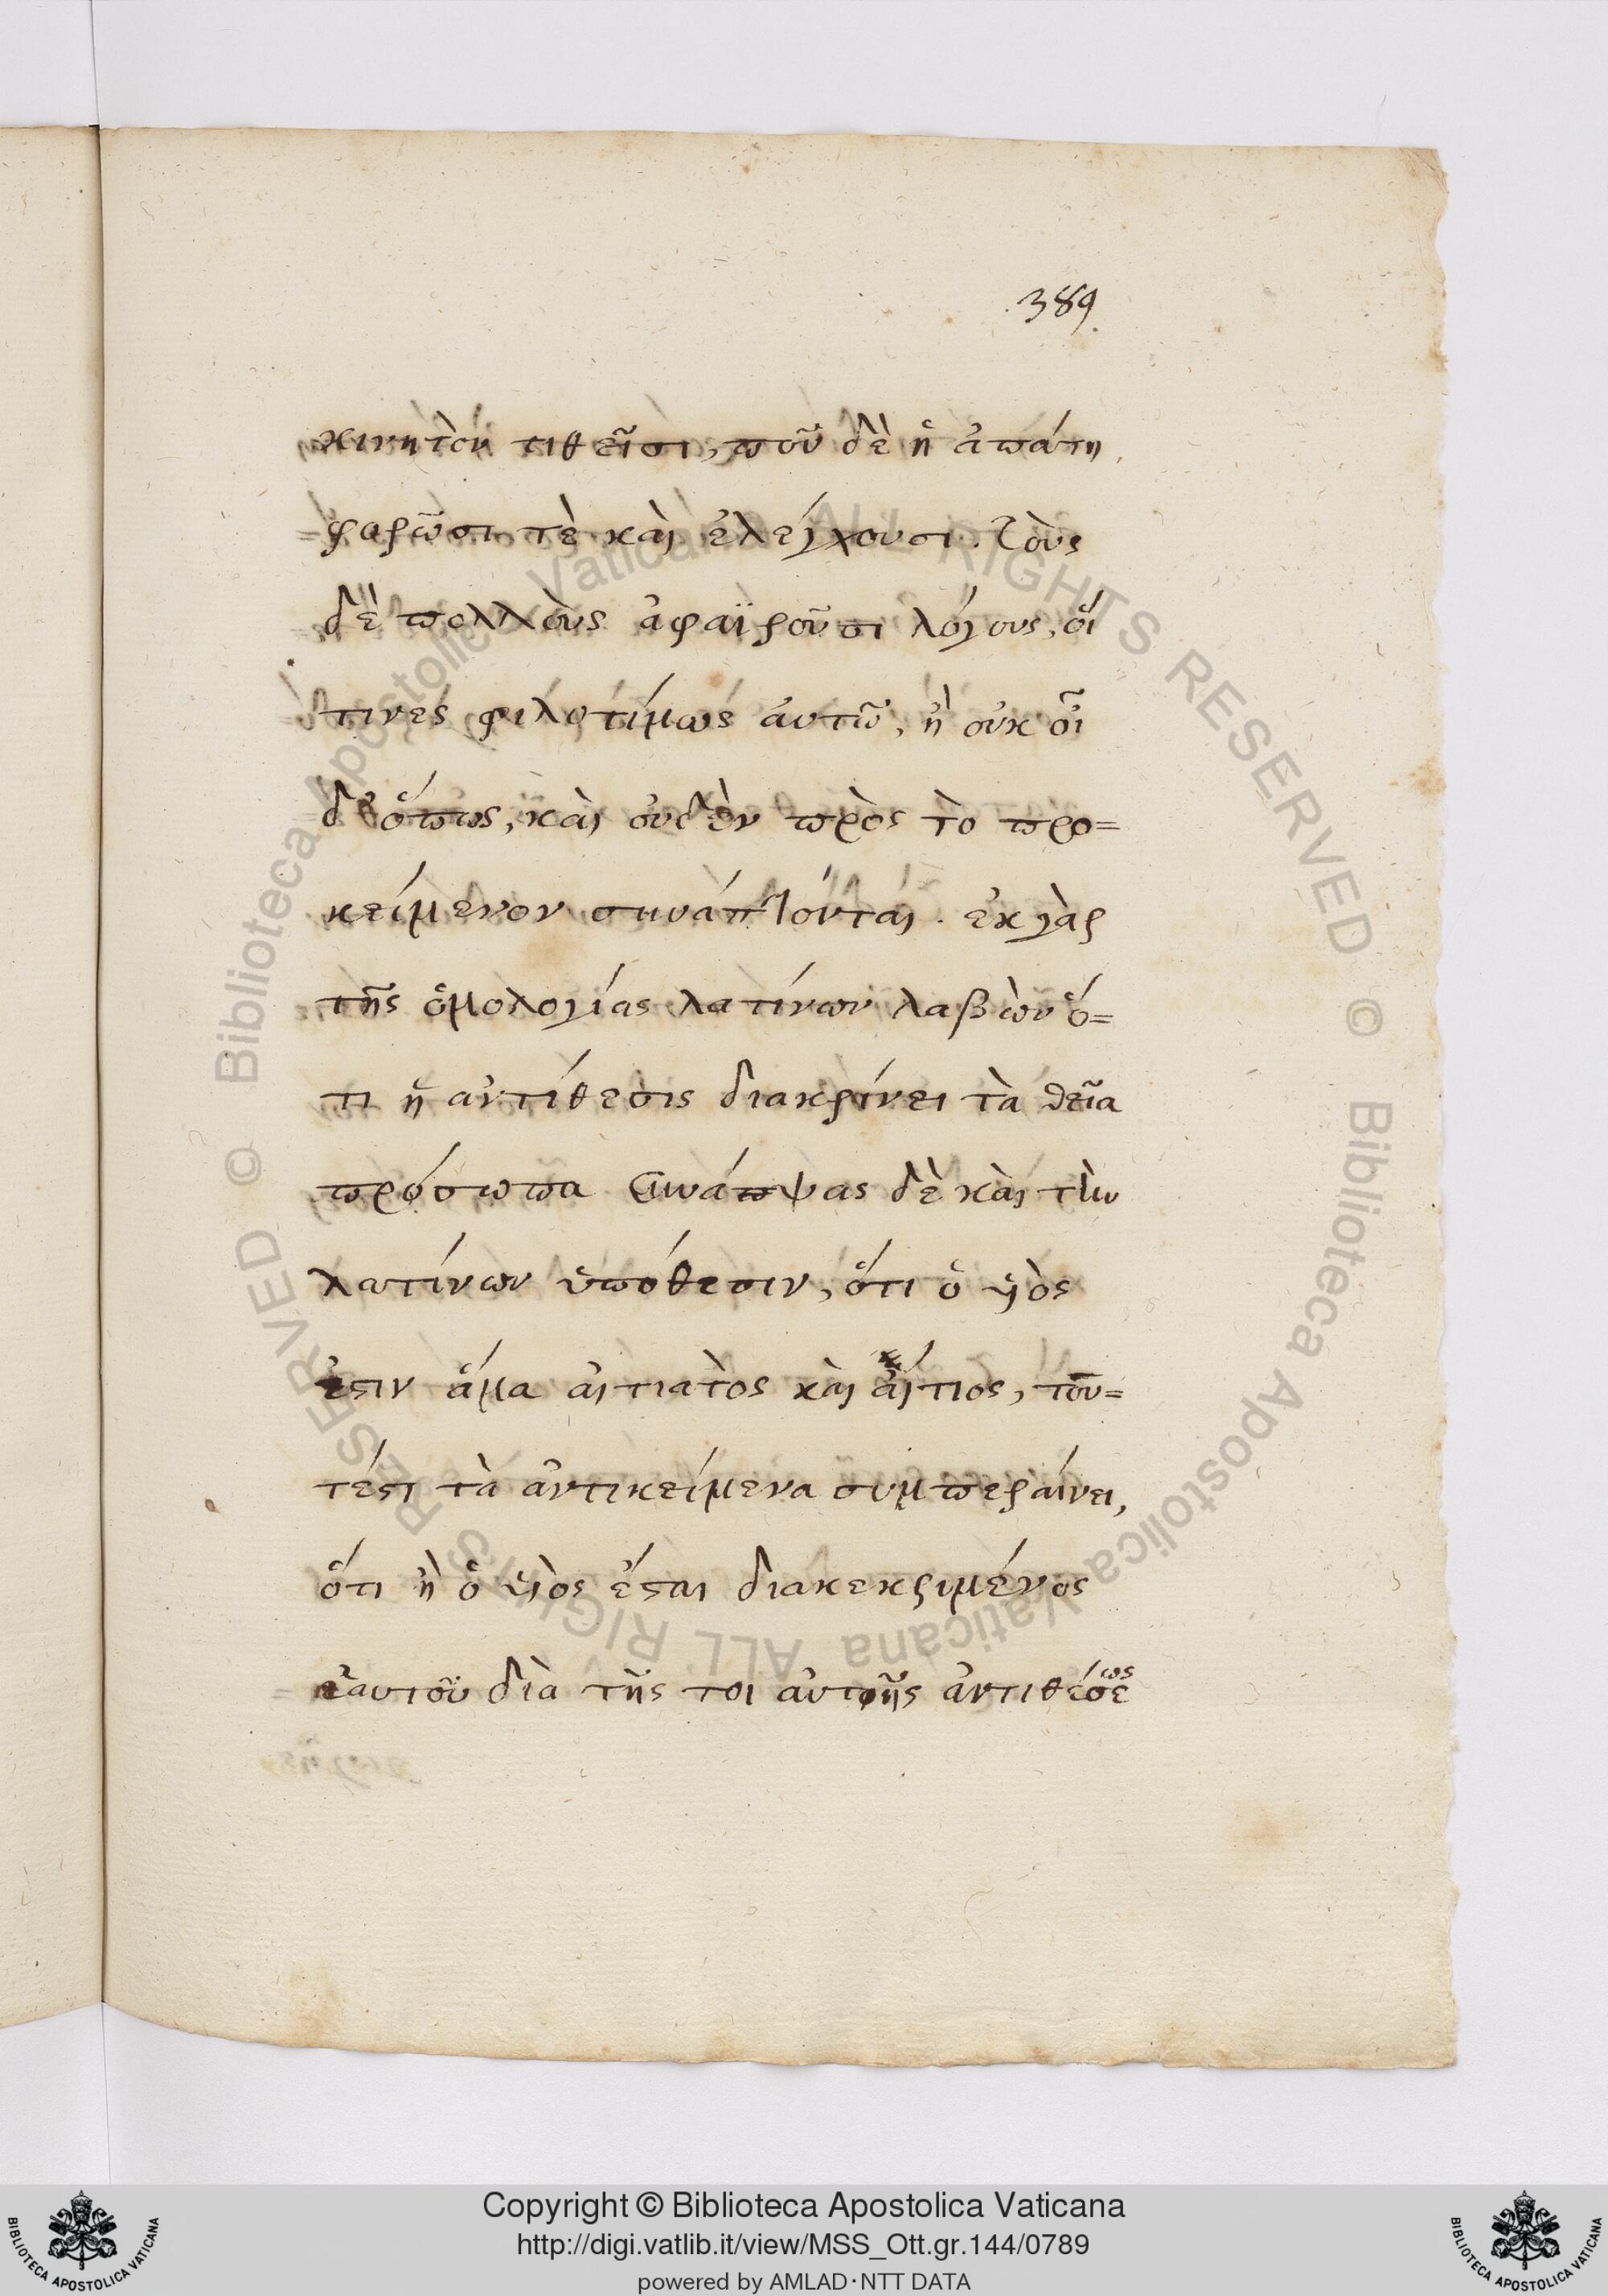 389.
κινητὸν τιθεῖσι, ποῦ δὲ ἡ ἀπάτη
φαρῶσι τὲ καὶ ἐλέγχουσι. Τοὺς
δὲ πολλοὺς ἀφαϊροῦσι λόγους, οἵ
τινες φιλοτίμως ἀυτῶ, ἢ οὐκ οἶ
δ' ὅπως, καὶ οὐδὲν πρὸς τὸ προ=
κείμενον συνάπτονται. ἐκ γὰρ
τῆς ὁμολογίας λατίνων λαβὼν ὅ=
τι ἡ ἀντίθεσις διακρίνει τὰ θεῖα
πρόσωπα συνάπψας δὲ καὶ τὴν
λατίνων ὑπόθεσιν, ὅτι ὁ υἱὸς
ἐστιν ἅμα ἀιτιατὸς καὶ ἄιτιος, του=
τέστι τὰ ἀντικείμενα συμπεραίνει,
ὅτι ἢ ὁ υἱὸς ἔσται διακεκριμένος
ἑαυτοῦ διὰ τῆς τοι ἀυτῆς ἀντιθέσεως
Copyright © Biblioteca Apostolica Vaticana
http://digi.vatlib.it/view/MSS_Ott.gr.144/0789
powered by AMLAD·NTT DATA
BIBLIOTECA APOSTOLICA VATICANA
BIBLIOTECA APOSTOLICA VATICANA
© Biblioteca Apostolica Vaticana ALL RIGHTS RESERVED © Biblioteca Apostolica Vaticana ALL RIGHTS RESERVED